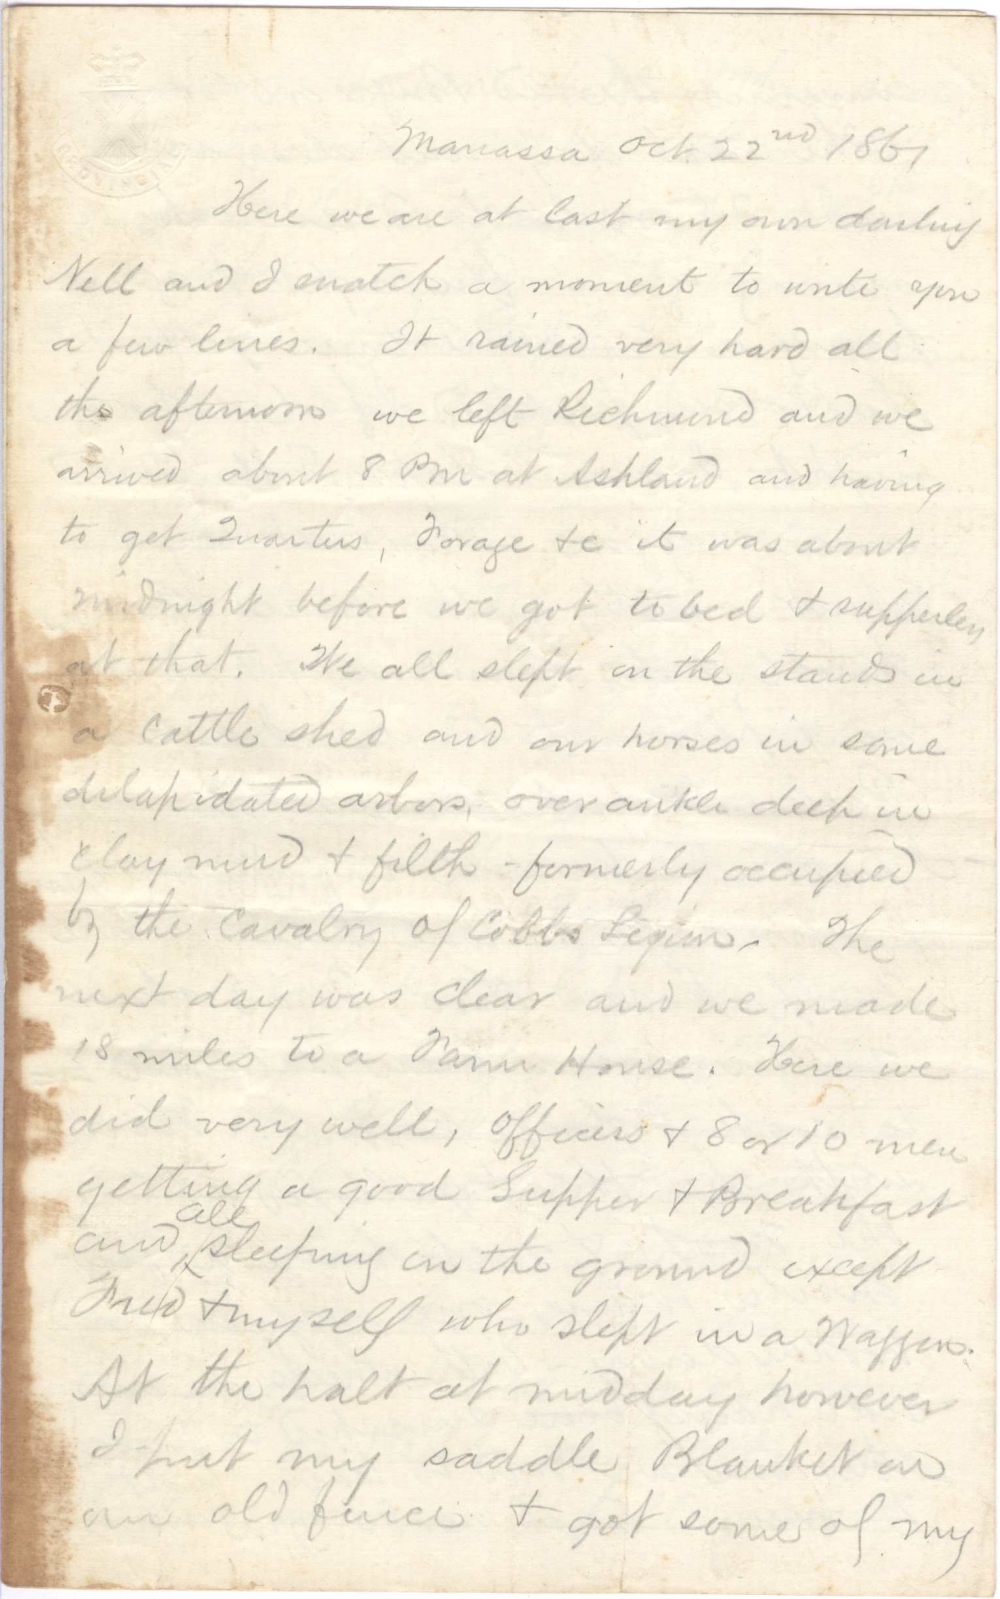 Manassa Oct. 22nd 1861
Here we are at last my own darling
Nell and I snatch a moment to write you
a few lines. It rained very hard all
the afternoon we left Richmond and we
arrived about 8 Pm at Ashland and having
to get Quarters, Forage &c it was about
midnight before we got to bed & supperless
at that. We all slept on the stands in
a cattle shed and our horses in some
dilapidated arbors, over ankle deep in
clay mud & filth - formerly occupied
by the Cavalry of Cobbs Legion. The
next day was clear and we made
18 miles to a Farm House. Here we
did very well, officers & 8 or 10 men
getting a good Supper & Breakfast
and all sleeping on the ground except
Fred & myself who slept in a Waggon.
At the halt at midday however
I put my saddle Blanket on
an old fence & got some of my